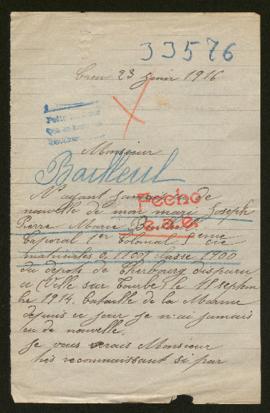 33576
23 1916
Monsieur
Bailleul
N'ayant jamais de
Fecho
nouvelle de mon mari Joseph
Pierre Marie
Caporal 1er Colonial 5 cie
matricule classe 1900
du dépôt de Cherbourg disparu
à Ville sur Tourbe le 15 septem
bre 1914. bataille de la Marne
depuis ce jour je n'ai jamais
eu de nouvelle.
Je vous serais Monsieur
très reconnaissant si par